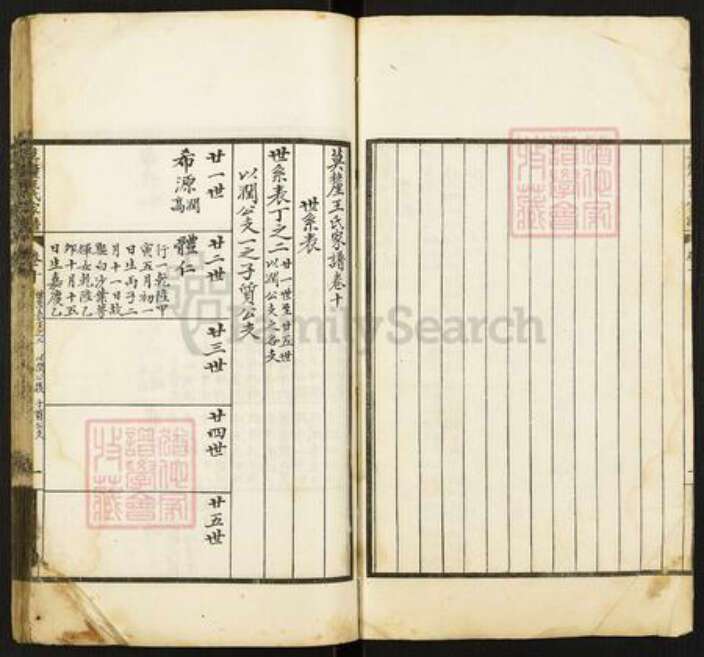 莫釐王氏家譜卷十
世系表
世系表丁之二 廿一世至廿五世
以潤公支之各支
以潤公支一之子質公支
廿一世
廿二世
廿三世
廿四世
廿五世
希源 潤高
體仁
行一乾隆甲
寅五月初一
日生丙子二
月十一日故
聚白沙葉
女乾隆乙
卯十月十五
日生嘉慶乙
卷十
FamilySearch